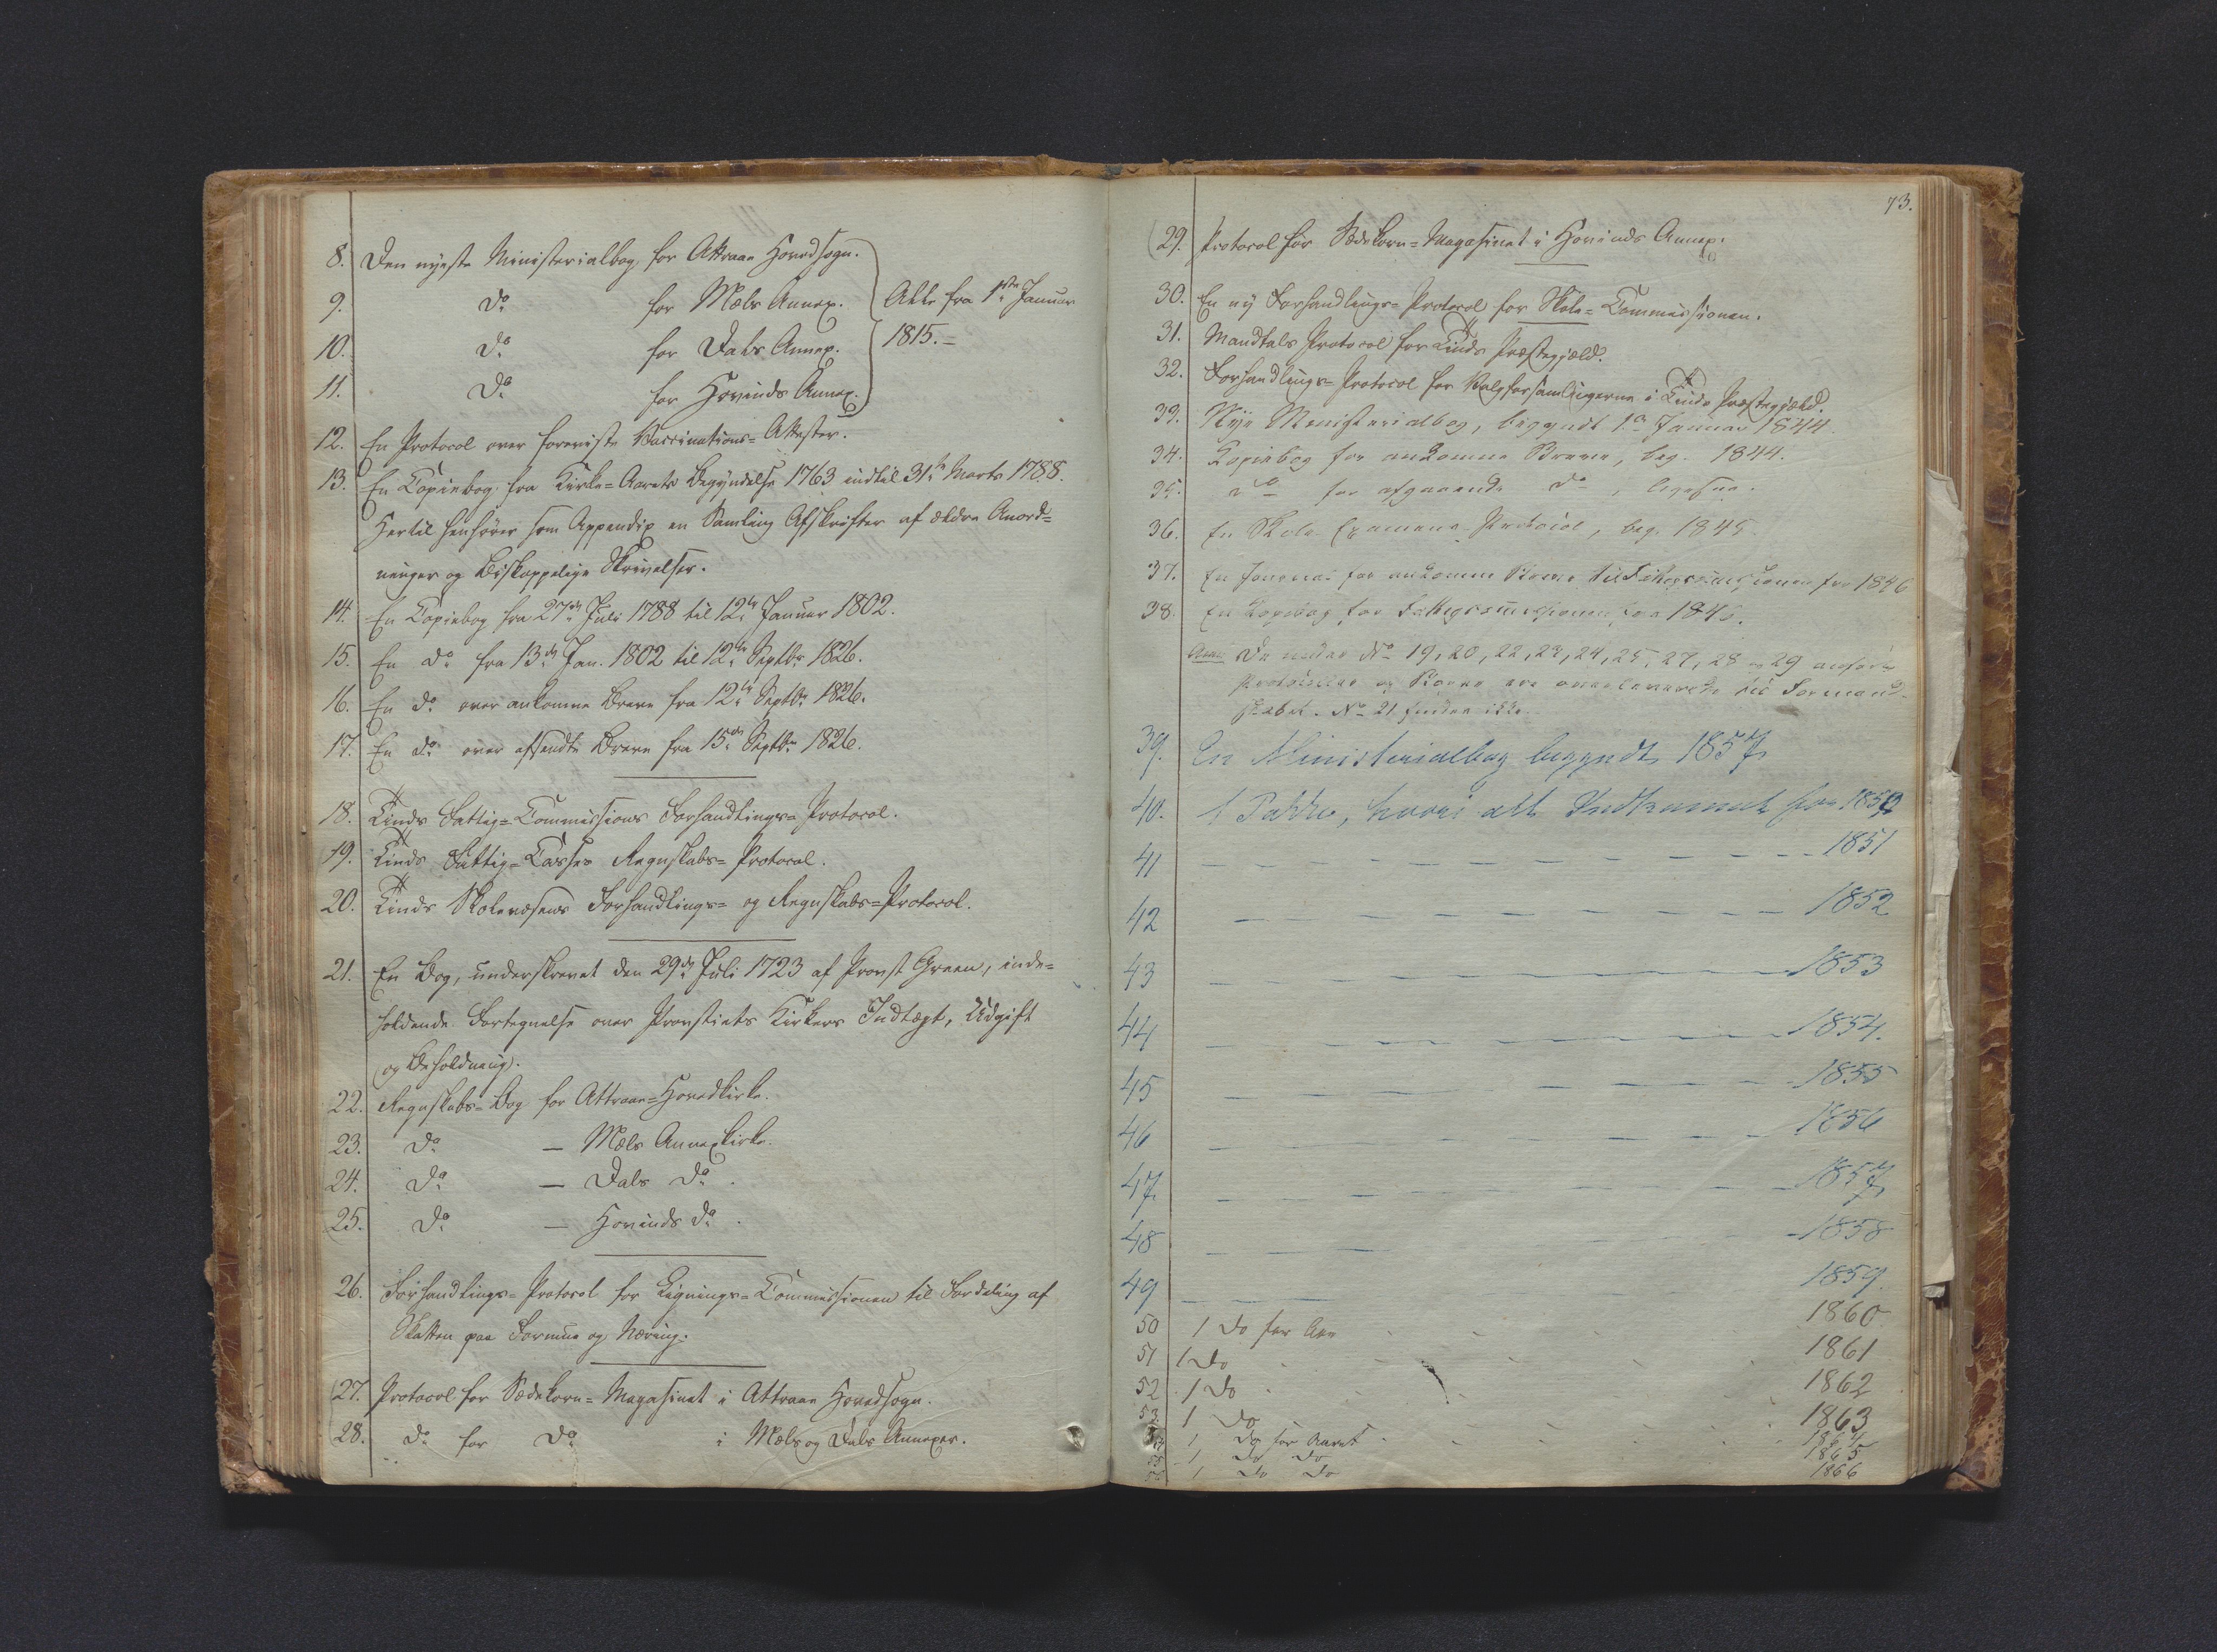 8. Den nyeste Ministerialbog for Attraae Hovedsogn.
9. Do for Mæls Annex. Alle fra 1ste Januar
10. Do for Dals Annex. 1815.=
11. Do for Hovinds Annex.
12. En Protocol over foreviste Vaccinations=Attester.
13. En Copiebog fra Kirke=Aarets Begyndelse 1763 indtil 31te Marts 1788.
Hertil henhører som Appendix en Samling Afskrifter af ældre Anord=
ninger og Biskoppelige Skrivelser.
14. En Copiebog fra 27de Juli 1788 til 12te Januar 1802.
15. En do fra 13de Jan. 1802 til 12te Septbr 1826.
16. En do over ankomne Breve fra 12te Septbr 1826.
17. En do over afsendte Breve fra 15de Septbr 1826.
18. Tinds Fattig=Commissions Forhandlings=Protocol.
19. Tinds Fattig=Casses Regnskabs=Protocol.
20. Tinds Skolevæsens Forhandlings= og Regnskabs=Protocol.
21. En Bog, underskrevet den 29de Juli 1723 af Provst Green, inde=
holdende Fortegnelse over Provstiets Kirkers Indtægt, Udgift
og Beholdning.
22. Regnskabs=Bog for Attraae=Hovedkirke.
23. Do — Mæls Annexkirke.
24. Do — Dals Do.
25. Do — Hovinds Do.
26. Forhandlings=Protocol for Lignings=Commissionen til Fordeling af
Skatten paa Formue og Næring.
27. Protocol for Sædekorn=Magasinet i Attraae Hovedsogn.
28. Do for Do i Mæls og Dals Annexer.
73.
29. Protocol for Sædekorn=Magasinet i Hovinds Annex.
30. En ny Forhandlings=Protocol for Skole=Commissionen.
31. Mandtals Protocol for Tinds Præstegjæld.
32. Forhandlings=Protocol for Valgforsamlingerne i Tinds Præstegjæld.
33. Nye Ministerialbog, begyndt 1ste Januar 1844.
34. Kopiebog for ankomne Breve, beg. 1844.
35. do for afgaaende do,
36. En Skole-Examens-Protocol, beg. 1845.
37. En Journal for ankomne Breve til Fattigcommissionen fra 1846
38. En Kopibog for Fattigcommissionen fra 1846.
Anm. De under No 19, 20, 22, 23, 24, 25, 27, 28 og 29 anførte
Protocoller og Bøger ere overleverede til Formand-
skabet. No 21 findes ikke.
39. En Ministerialbog begyndt 1857
40. 1 Pakke, hvori alt Indkommet for 1850
41 1851
42 1852
43 1853
44 1854.
45 1855
46 1856
47 1857
48 1858
49 1859.
50 1 Do for Aar 1860
51 1 Do 1861
52 1 Do 1862
53 1 Do 1863
54 1 Do for Aaret 1864
55 1 Do Do 1865
56 1 Do Do 1866